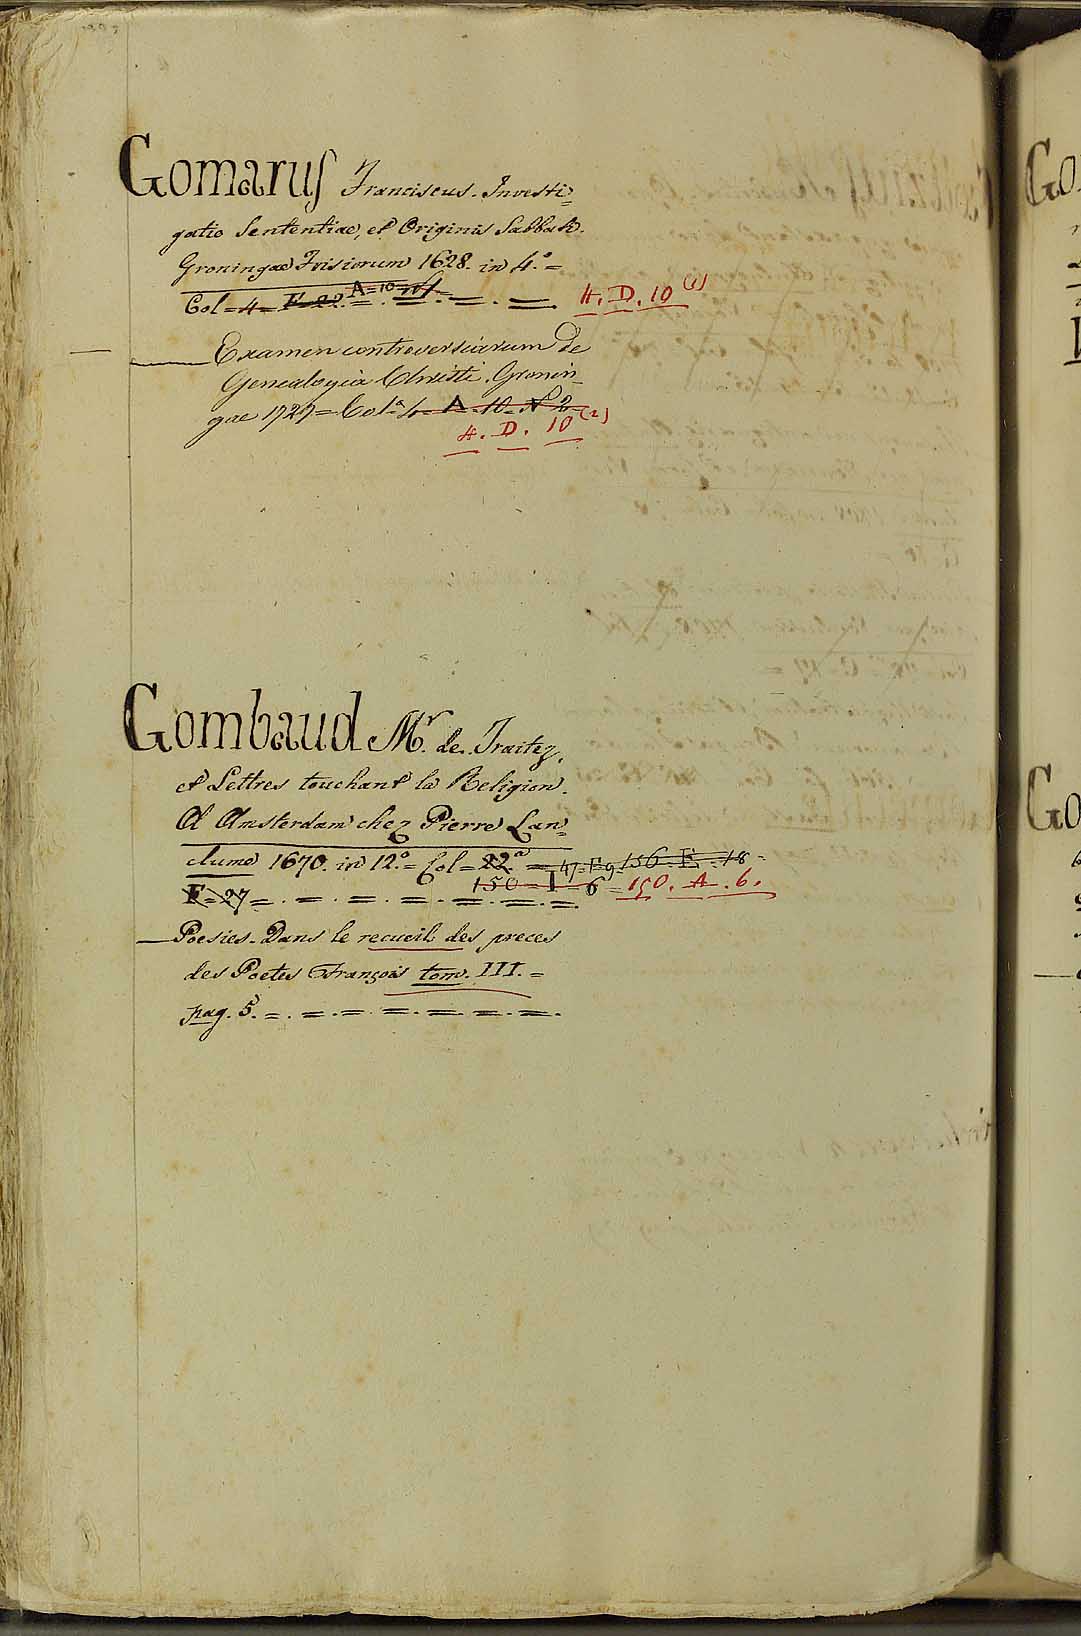 Gomarus Franciscus. Investi=
gatio Sententiae, et Originis Sabbati.
Groningae Frisiorum 1628. in 4.° =
Col = 4 = F = 22. A = 10 = N1. = 4. D. 10 (1)
Examen controversiarum de
Genealogia Christi. Gronin_
gae 1727 = Col.a 4 = A = 10 = N 2
4. D. 10 (2)
Gombaud Mr. de. Traitez,
et Lettres touchant la Religion.
A Amsterdam chez Pierre Lan=
clume 1670. in 12.° = Col = 22a = 47 = F 9 156. E. 18 =
F = 27 = 150 = I = 6 = 150. A. 6.
Poesies. Dans le recueil des pieces
des Poetes François tom. III. =
pag. 5. =
Go
Go